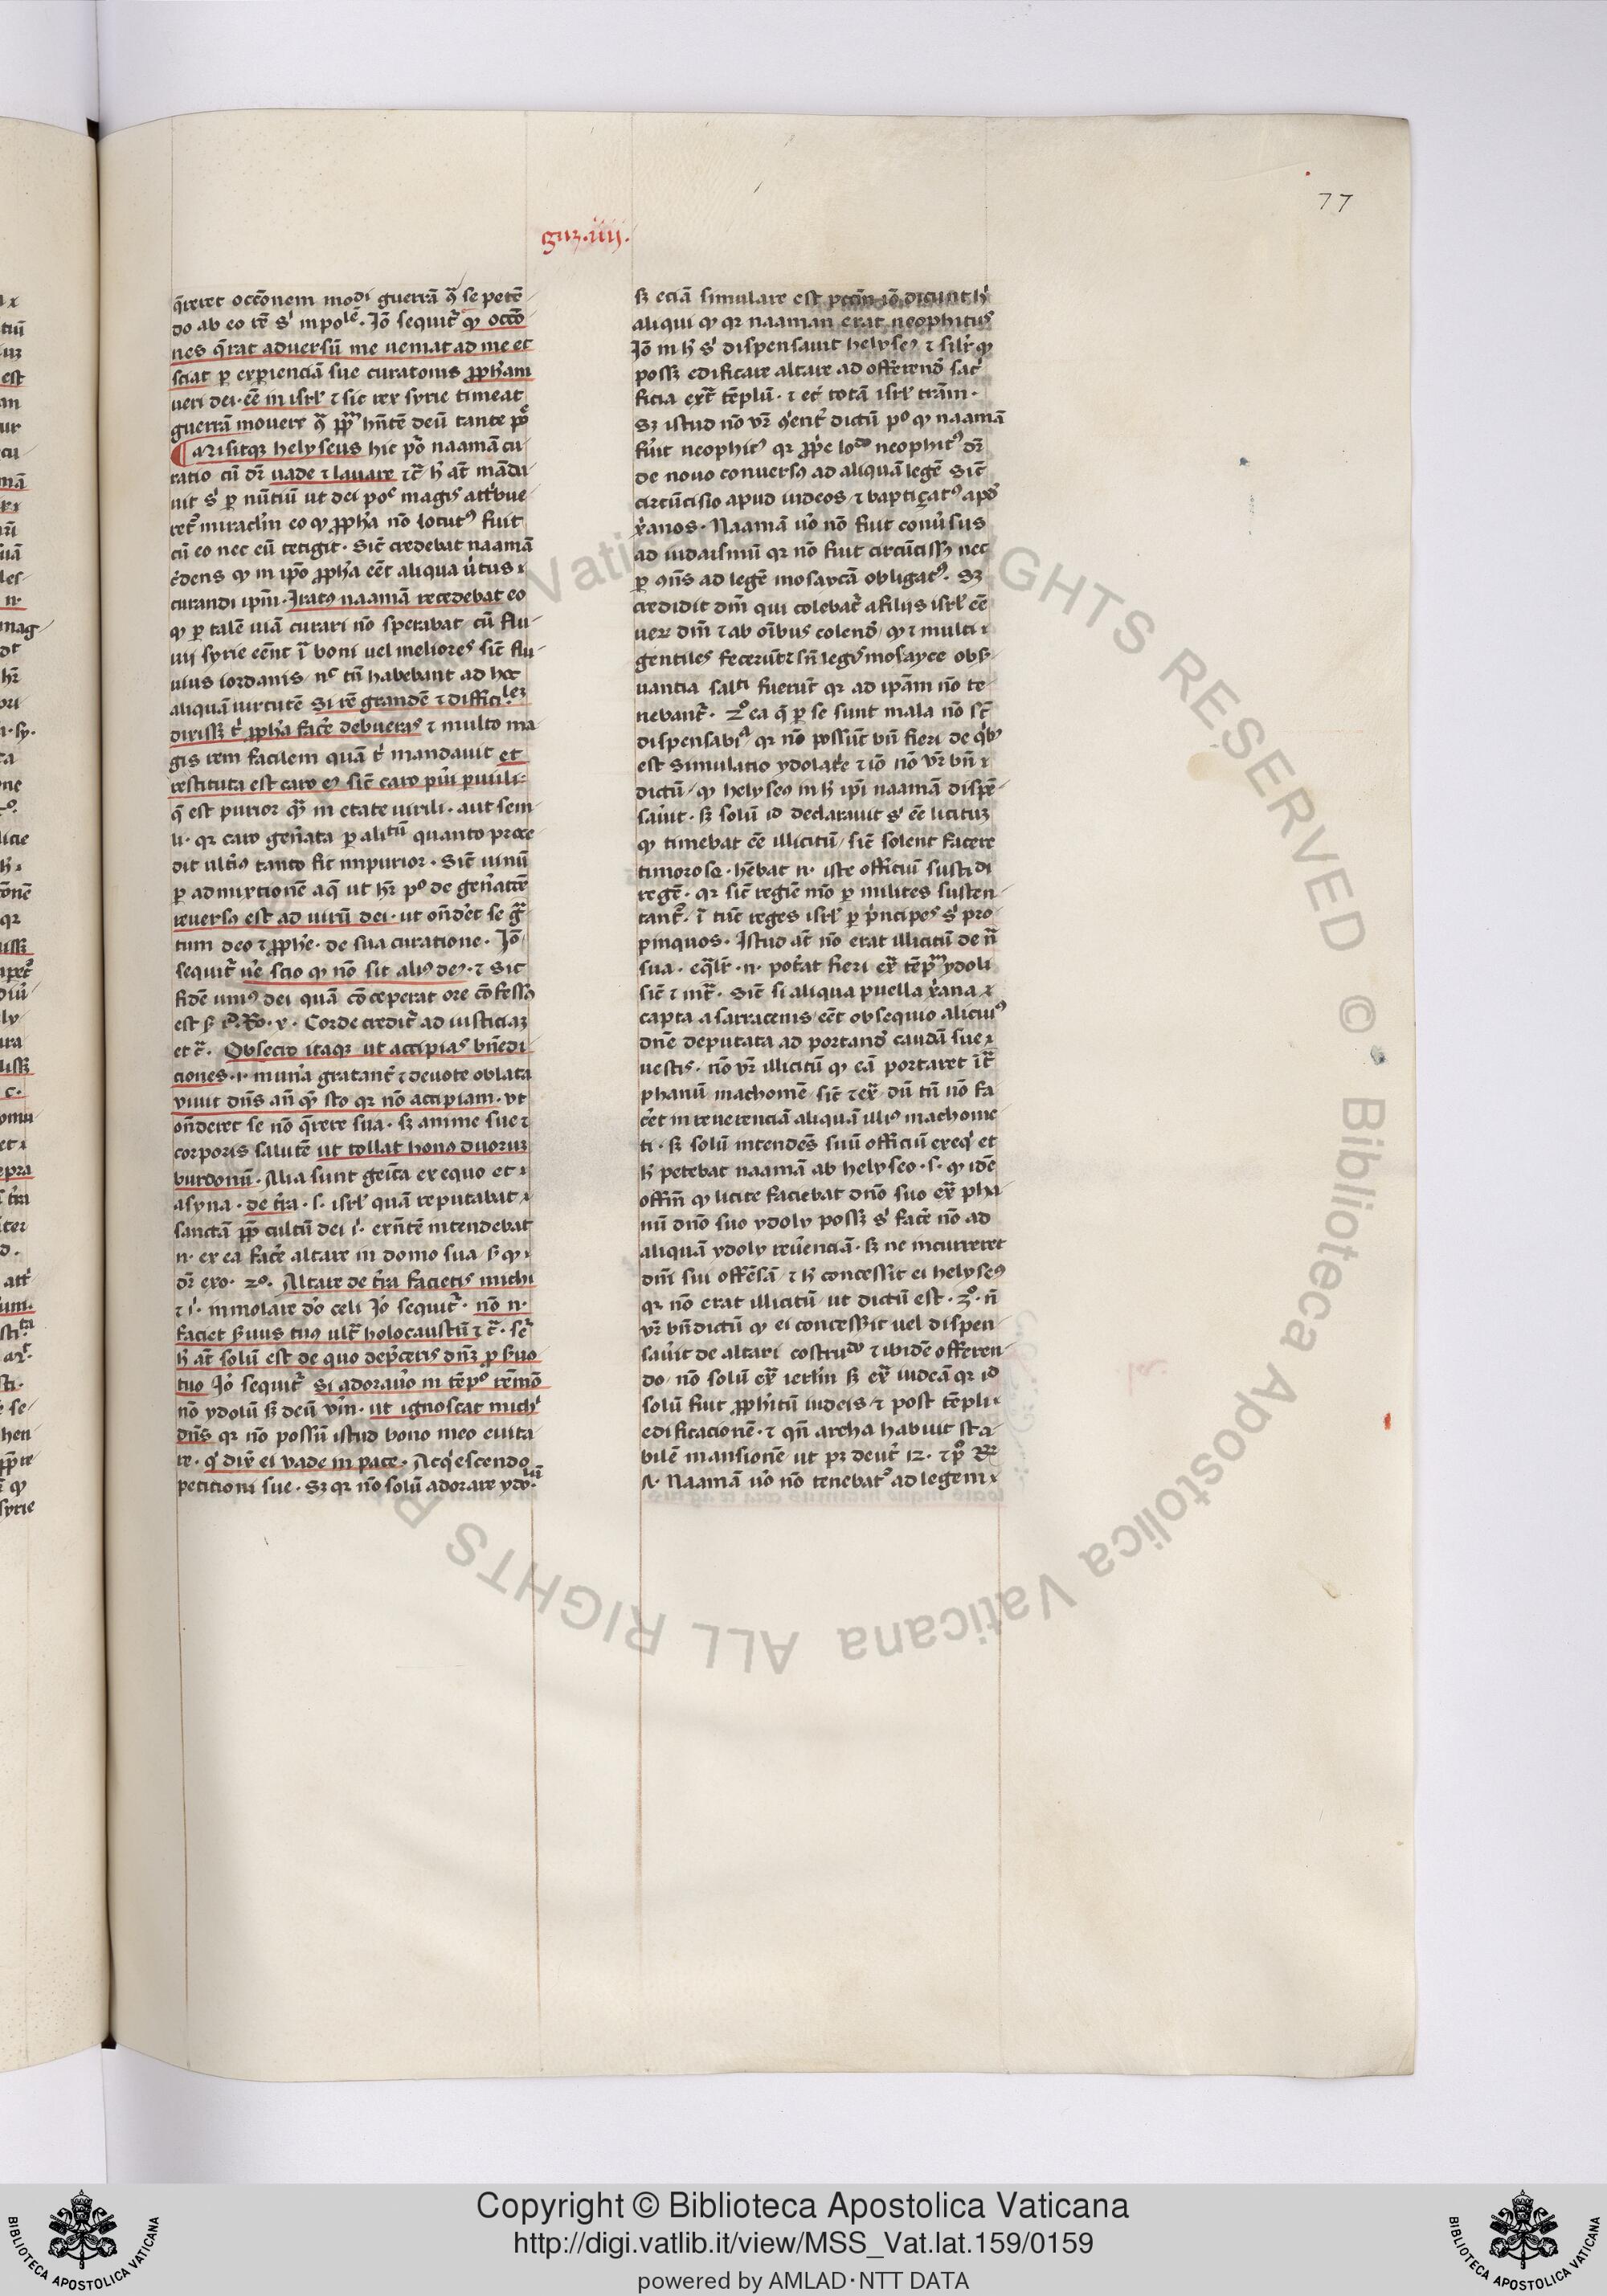 77
q̄reret occōnem modi guerrā 9ͣ se petē
do ab eo rē sͥ inpolē. Jō sequit᷑ qꝫ occō
nes q̄rat adversū me veniat ad me et
sciat ꝑ exꝑienciā sue curatonis ꝓph̄am
veri dei. eē in isrl̓ ⁊ sic rex syrie timeat
guerrā movere
Misitqꝫ helyseus hic po᷑ naamā cu
ratio cū dr̄ vade ⁊ lavare ⁊c̄ h̓ at̄ māda
vit sͥ ꝑ nūtiū ut dei poᶜ magis att̓bue
ret᷑ miracl̓m eo qꝫ ꝓph̄a nō locut⁹ fuit
cū eo nec eū tetigit. Sic̄ credebat naamā
c̓dens qꝫ in ip̄o ꝓph̄a eēt aliqua v̓tus
curandi ip̄m. Irat⁹ naamā recedebat eo
qꝫ ꝑ talē viā curari nō sperabat cū flu
vii syrie eēnt ī boni vel meliores sic̄ flu
vius iordanis nᶜ tn̄ habebant ad hoc
aliquā virtutē Si rē grandē ⁊ difficilez
dixissꝫ t̓ ꝓph̄a fac̓e debueras ⁊ multo ma
gis rem facilem quā t̓ mandavit et
restituta est caro e⁹ sic̄ caro pu̓i ꝑvuli
q̄ est purior qꝫ in etate virili. aut sem
li. qr caro gen̓ata ꝑ alitū quanto proce
dit ulti⁹ tanto fit impurior. Sic̄ vinū
ꝑ admixtionē aq̄ ut hr̄ p⁰ de gen̓atōe
revers⁹ est ad virū dei. ut ondēt se g̃
tum deo ⁊ ꝓph̄e. de sua curatione. Jō
sequit᷑ v̓e scio qꝫ nō sit ali⁹ de⁹. ⁊ sic
fidē uni⁹ dei quā cōceperat ore cōfess⁹
est. Ro. x. Corde credit᷑ ad iusticiaꝫ
et c̄. Obsecro itaqꝫ ut accipias bn̄edi
ctiones. i. mun̓a gratant̓ ⁊ devote oblata
vivit dn̄s an̄ quē sto qr nō accipiam. vt
on̄deret se nō q̄rere sua. sꝫ anime sue ⁊
corporis salutē ut tollat hon⁹ duoruꝫ
burdonū. Alia sunt geīta ex equo et
asyna. de t̓ra. s. isrl̓ quā reputabat
sanctā ꝓp̄ cultū dei ī exn̄te intendebat
n. ex ea fac̓e altare in domo sua sꝫ qꝫ
dr̄ exo. 20. Altare de t̓ra facietis michi
⁊ ī immolare dō celi Jō sequit᷑. nō n.
faciet s̓vus tu⁹ ult᷑ holocaustū ⁊c̄. sꝫ
h̓ at̄ solū est de quo dep̓ceris dn̄ꝫ ꝓ s̓vo
tuo Jō sequit᷑ Si adorav̓o in tēp⁰ rēmō
nō ydolū sꝫ deū vḿ. ut ignoscat mich̓
dn̄s qr nō possū istud bono meo evita
re. qͥ dix̄ ei vade in pace. Acq̓escendo
petitioni sue. Sꝫ qr nō solū adorare ydolū
sꝫ eciā simulare est pctm̄ iō dicūt h̓
aliqui qꝫ qr naaman erat neophitus
Jō in h̓ sͥ dispensavit helyse⁹ ⁊ silr̓ qꝫ
possꝫ edificare altare ad offerend̓ sac̓
ficia ext᷑ tēplū. ⁊ et̓ totā isrl̓ trām.
Sꝫ istud nō vr̄ 9̓ent̓ dictū p⁰ qꝫ naamā
fu̓it neophit⁹ qr ꝓp̓e lo᷎do neophit⁹ dr̄
de novo convers⁹ ad aliquā legē Sic̄
circūcisio apud iudeos ⁊ baptiçat⁹ apd̓
xͥanos. Naamā v̓o nō fuit conv̓sus
ad iudaismū qr nō fuit circūciss⁹ nec
ꝑ 9n̄s ad legē mosaycā obligat⁹. Sꝫ
credidit dm̄ qui colebat᷑ a filiis isrl̓ eē
verū dm̄ ⁊ ab oībus colend̓ qꝫ ⁊ multi
gentiles fecerūt ⁊ sn̄ leg̓ mosayce obs̓
vantia salti fuerūt qr ad ipām nō te
nebant᷑. 2⁰ ea q̄ ꝑ se sunt mala nō st̄
dispensabiᵃ qr nō possūt bn̄ fieri de qͥb⁹
est simulatio ydolat̓e ⁊ iō nō vr̄ bn̄
dictū qꝫ helyse⁹ in h̓ ip̄i naamā dispē
sav̓it. sꝫ solū id declaravit sͥ eē licituꝫ
qꝫ timebat eē illicitū sic̄ solent facere
timorose. hēbat n. iste officiū sustidi
regē. qr sic̄ regiē mō ꝑ milites susten
tant᷑. ī tūc reges isrl̓ ꝑ p̓ncipes sͥ pro
pinquos. Istud at̄ nō erat illicitū de n̄
sua. eq̄lr̓. n. pot̓at fieri ext᷑ tēp̄m ydoli
sic̄ ⁊ int᷑. Sic̄ si aliqua puella xͥana
capta a sarracenis eēt obsequio alicui⁹
dn̄e deputata ad portand̓ caudā sue
vestis. nō vr̄ illicitū qꝫ eā portaret īt᷑
phanū machomē sic̄ ⁊ ex᷑ dū tn̄ nō fa
c̓et in reverenciā aliquā illi⁹ machome
ti. sꝫ solū intendēs suū officiū exeqͥ et
h̓ petebat naamā ab helyseo. s. qꝫ idē
offin̄ qꝫ licite faciebat dn̄o suo ext᷑ pha
nū dn̄o suo ydoly possꝫ sͥ fac̓e nō ad
aliquā ydoly rev̓enciā. sꝫ ne incurreret
dn̄i sui offēsā ⁊ h̓ concessit ei helyse⁹
qr nō erat illicitū ut dictū est. 3⁰. n̄
vr̄ bn̄ dictū qꝫ ei concesserit vel dispen
sav̓it de altari costrudo ⁊ ibidē offeren
do nō solū ext᷑ ierl̄m sꝫ ext᷑ iudeā qr id
solū fuit ꝓhi̓tū iudeis ⁊ post tēpli
edificacionē. ⁊ qn̄ archa habuit sta
bilē mansionē ut pꝫ deut̓ 12. ⁊ p⁰ Rꝫ
8. Naamā v̓o nō tenebat᷑ ad legem
Copyright © Biblioteca Apostolica Vaticana
http://digi.vatlib.it/view/MSS_Vat.lat.159/0159
powered by AMLAD·NTT DATA
BIBLIOTECA APOSTOLICA VATICANA
BIBLIOTECA APOSTOLICA VATICANA
© Biblioteca Apostolica Vaticana ALL RIGHTS RESERVED